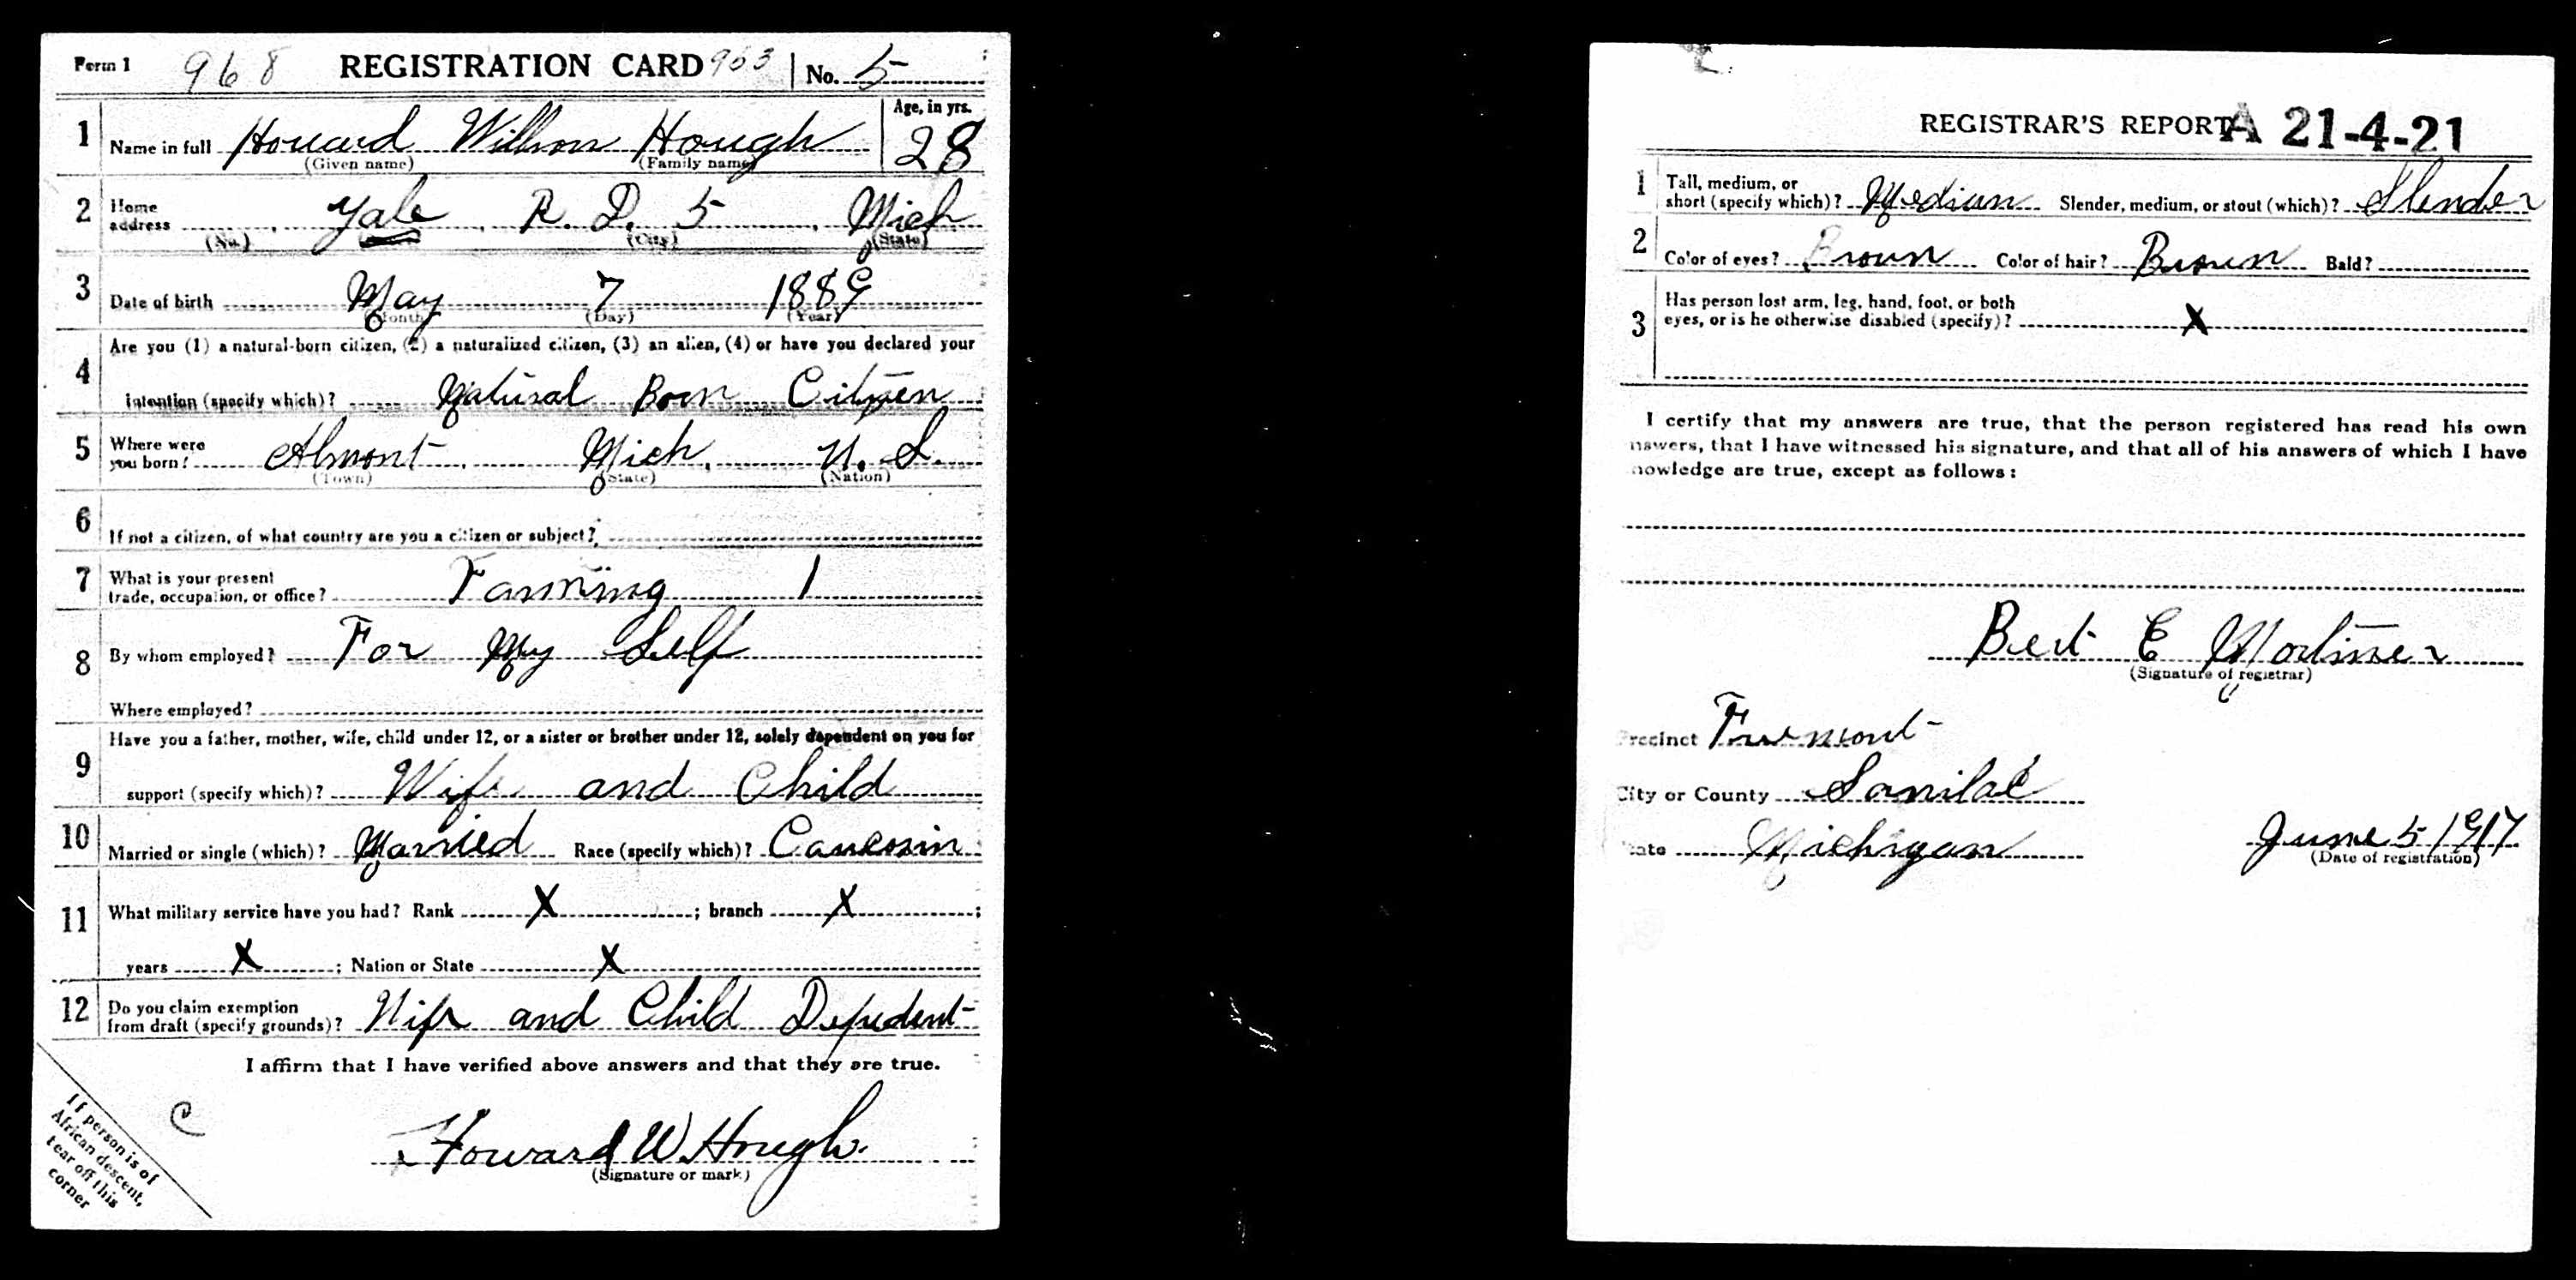 Form 1 968 REGISTRATION CARD 963 No. 5
1 Name in full Howard Willson Hough Age, in yrs. 28
(Given name) (Family name)
2 Home address Yale R. D. 5 Mich
(No.) (City) (State)
3 Date of birth May 7 1889
(Month) (Day) (Year)
4 Are you (1) a natural-born citizen, (2) a naturalized citizen, (3) an alien, (4) or have you declared your
intention (specify which)? Natural Born Citizen
5 Where were you born? Almont Mich. U. S.
(Town) (State) (Nation)
6 If not a citizen, of what country are you a citizen or subject?
7 What is your present trade, occupation, or office? Farming 1
8 By whom employed? For My Self
Where employed?
9 Have you a father, mother, wife, child under 12, or a sister or brother under 12, solely dependent on you for
support (specify which)? Wife and Child
10 Married or single (which)? Married Race (specify which)?
11 What military service have you had? Rank X ; branch X ;
years X ; Nation or State X
12 Do you claim exemption from draft (specify grounds)? Wife and Child Depedent
I affirm that I have verified above answers and that they are true.
C
Howard W. Hough.
(Signature or mark)
If person is of
African descent,
tear off this
corner
REGISTRAR'S REPORT A 21-4-21
1 Tall, medium, or short (specify which)? Medium Slender, medium, or stout (which)? Slender
2 Color of eyes? Brown Color of hair? Brown Bald?
3 Has person lost arm, leg, hand, foot, or both
eyes, or is he otherwise disabled (specify)? X
I certify that my answers are true, that the person registered has read his own
nswers, that I have witnessed his signature, and that all of his answers of which I have
nowledge are true, except as follows:
Bert E Mortimer
(Signature of registrar)
Precinct Fremont
City or County Sanilac
State Michigan June 5 1917
(Date of registration)